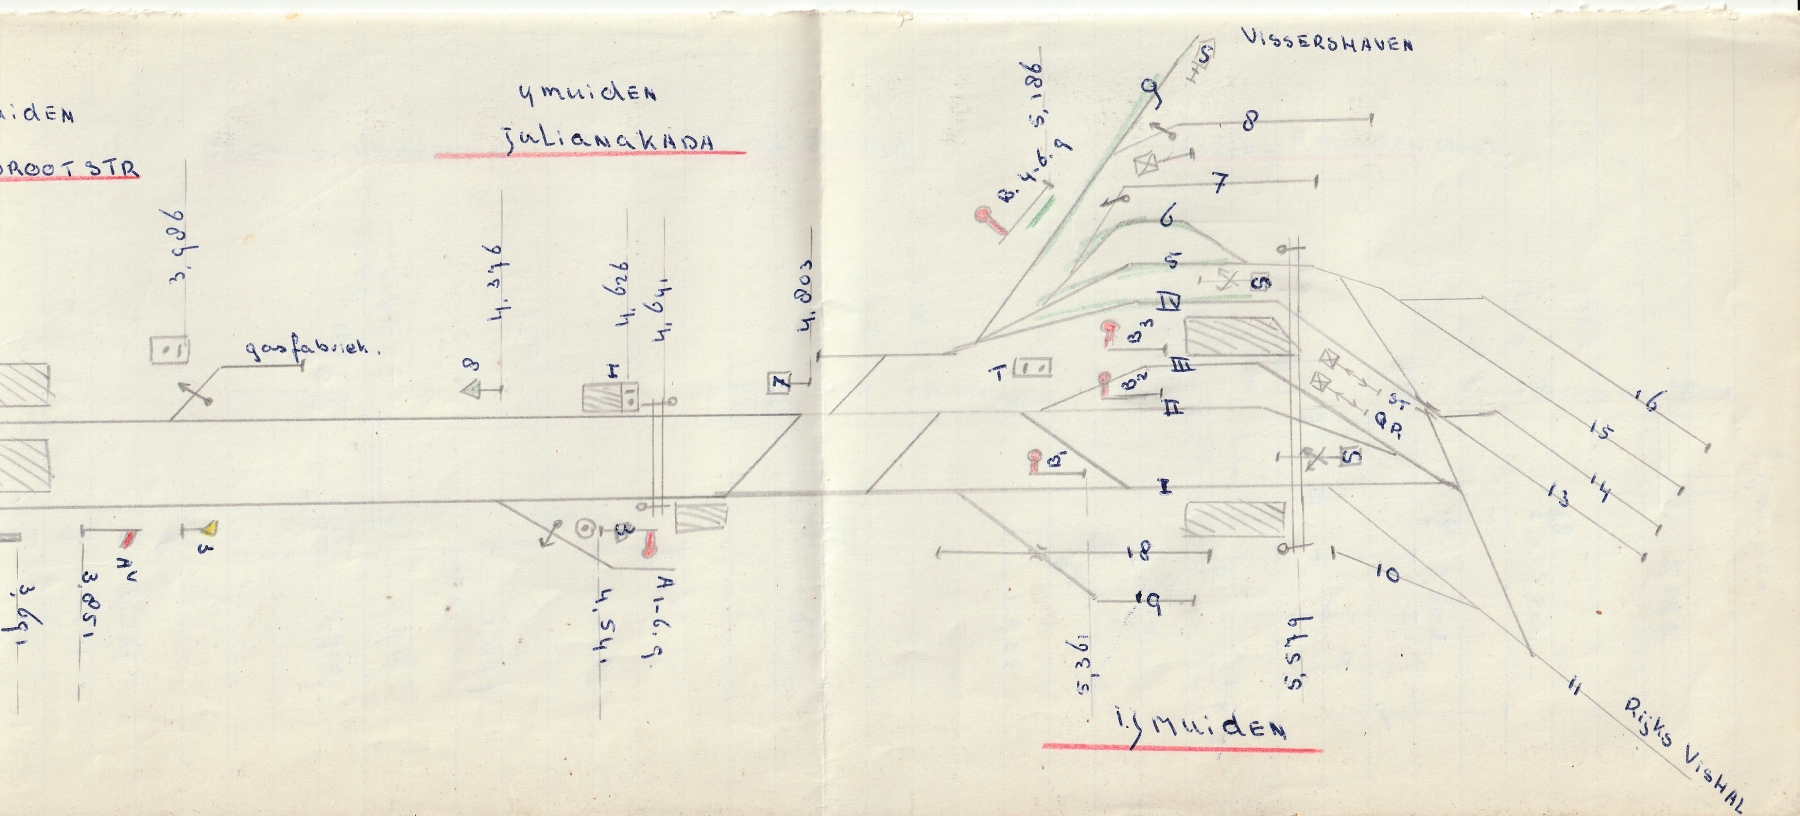 UIDEN
DROOTSTR
3,986
gasfabriek.
YMUIDEN
JULIANAKADA
4,376
8
H
4,626
4,641
4,803
Z
3,691
3,851
AV
4,541
A1-6.9.
B. 4.5.6.9
5,186
VISSERSHAVEN
S
9
8
7
6
5
S
IV
B3
T
III
B2
II
ST
QR
B1
S
I
16
15
14
13
18
10
19
5,361
5,579
11
IJMUIDEN
Rijks VISHAL